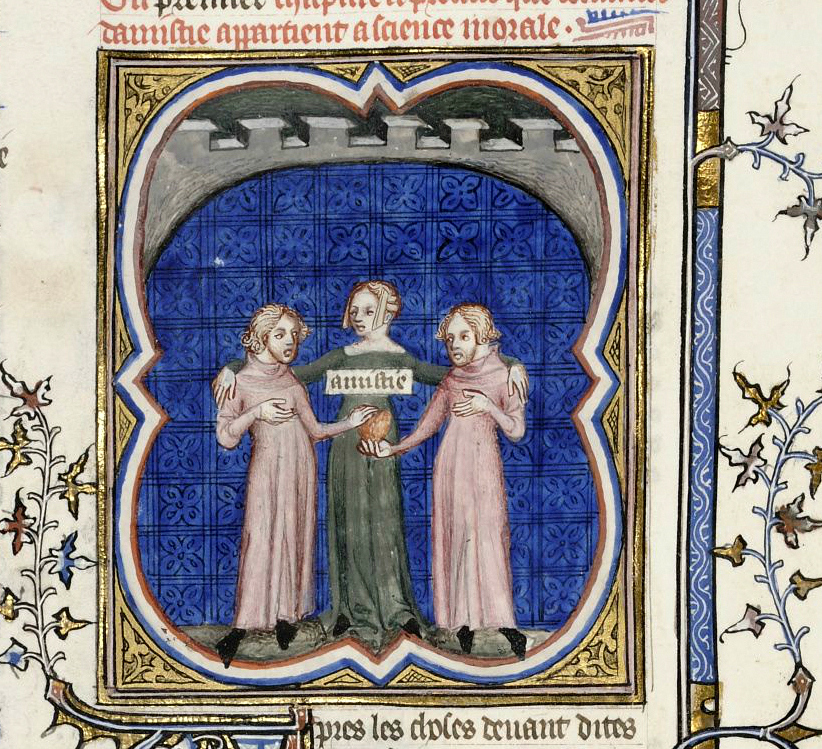 Ou premier chapitre
damistie appartient a science morale .
amistie
Apres les choses deuant dites